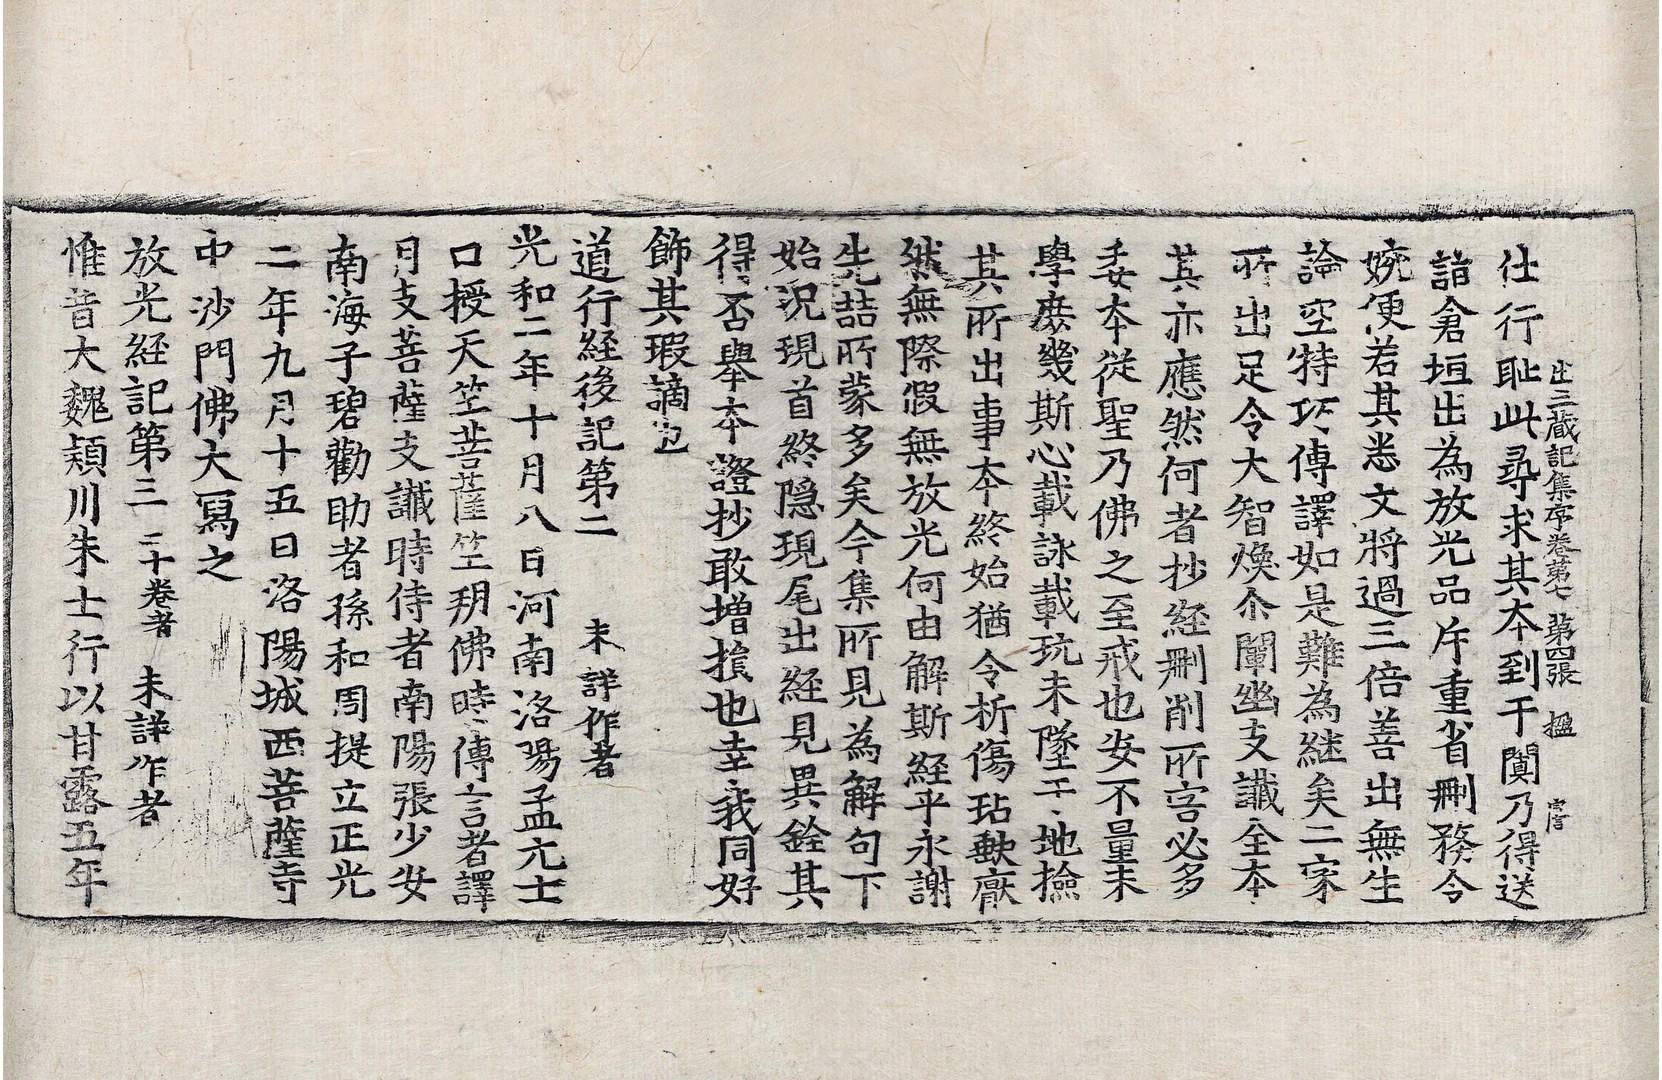 出三蔵記集序卷第七 第四張 搵
仕行耻此尋求其本到于闐乃得送
詣倉垣出為放光品斥重省刪務令
婉便若其悉文將過三倍善出無生
論空特巧傳譯如是難為継矣二家
所出足令大智煥尒闡幽支讖全本
其亦應然何者抄経刪削所害必多
委本從聖乃佛之至戒也安不量末
學庶幾斯心載詠載玩未墜于地撿
其所出事本終始猶令折傷玷缺厥
然無際假無放光何由解斯経乎永謝
先喆所蒙多矣今集所見為解句下
始況現首終隠現尾出経見異銓其
得否舉本證抄敢增損也幸我同好
飾其瑕謫也
道行経後記第二 未詳作者
光和二年十月八日河南洛陽孟元士
口授天竺菩薩竺朔佛時傳言者譯
月支菩薩支讖時侍者南陽張少安
南海子碧勸助者孫和周提立正光
二年九月十五日洛陽城西菩薩寺
中沙門佛大寫之
放光経記第三 二十卷者 未詳作者
惟昔大魏潁川朱士行以甘露五年